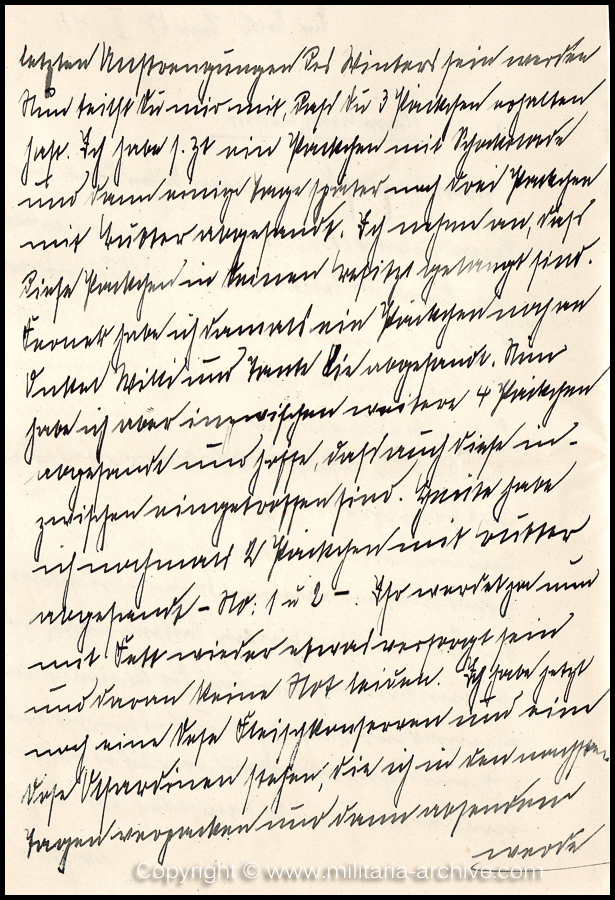 letzten Anstrengungen des Winters sein werden
Nun teilst Du mir mit, daß Du 3 Päckchen erhalten
hast. Ich habe s. Zt ein Päckchen mit Schokolade
und dann einige Tage später noch drei Päckchen
mit Butter abgesandt. Ich nehme an, daß
diese Päckchen in Deinen Besitz gelangt sind.
Ferner habe ich damals ein Päckchen noch an
Onkel Willi und Tante abgesandt. Nun
habe ich aber inzwischen weitere 4 Päckchen
abgesandt und hoffe, daß auch diese in-
zwischen eingetroffen sind. Heute habe
ich nochmals 2 Päckchen mit Butter
abgesandt – No. 1 u 2 –. Ihr werdet ja nun
mit Fett wieder etwas versorgt sein
und daran keine Not leiden. Ich habe jetzt
noch eine Dose Fleischkonserven und eine
Dose Ölsardinen stehen, die ich in den nächsten
Tagen verpacken und dann absenden
werde
Copyright © www.militaria-archive.com